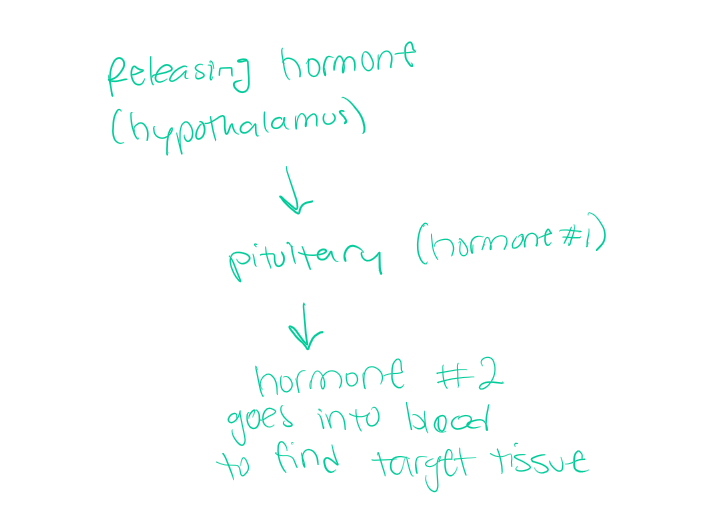 Releasing hormone
(hypothalamus)
↓
pituitary (hormone #1)
↓
hormone #2
goes into blood
to find target tissue